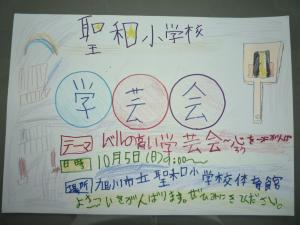 聖和小学校
学芸会
テーマ レベルの高い学芸会〜心を一つにがんばろう
日時 10月5日(日)9:00〜
場所 旭川市立聖和小学校体育館
ぜひみにきてください。